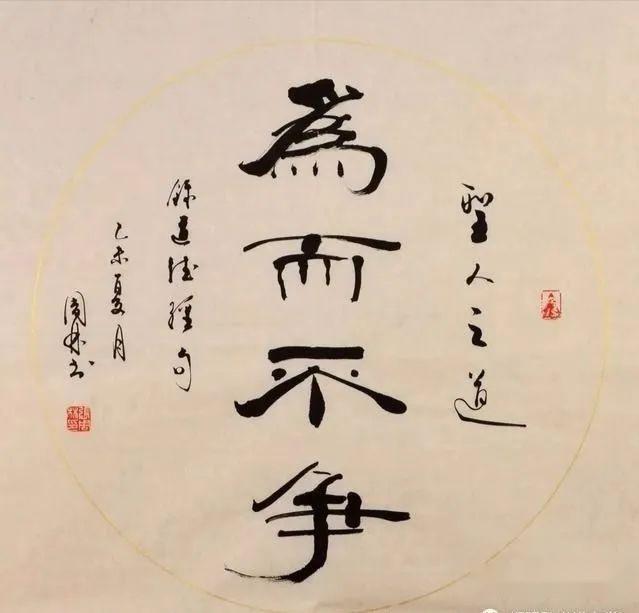 聖人之道
為而不爭
錄道德經句
乙未夏月
國林书